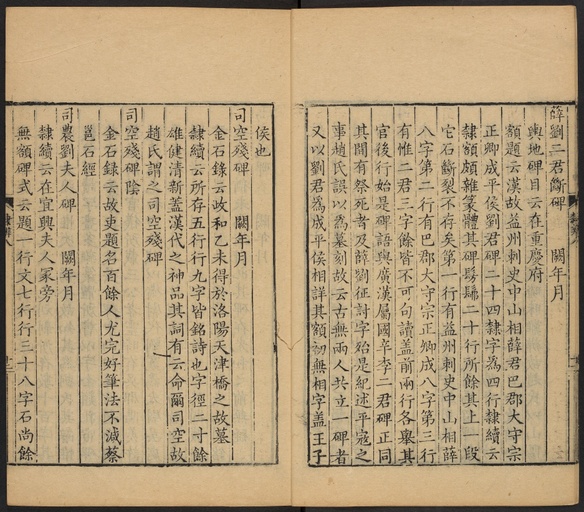 薛劉二君斷碑　闕年月
輿地碑目云在重慶府
額題云漢故益州刺史中山相薛君巴郡大守宗
正卿成平侯劉君碑二十四隸字為四行隸續云
隸額頗雜篆體其碑髣髴二十行所餘其上一段
它石斷裂不存矣第一行有益州刺史中山相薛
八字第二行有巴郡大守宗正卿成八字第三行
有惟二君三字餘皆不可句讀蓋前兩行各舉其
官後行始是碑語與廣漢屬國辛李二君碑正同
其閒有祭死者及薛劉征討字殆是紀述平寇之
事趙氏誤以為墓刻故云古無兩人共立一碑者
又以劉君為成平侯相詳其額初無相字蓋王子
侯也
司空殘碑　闕年月
金石錄云政和乙未得於洛陽天津橋之故墓
隸續云所存五行行九字皆銘詩也字徑二寸餘
雄健清新蓋漢代之神品其詞有云命爾司空故
趙氏謂之司空殘碑
司空殘碑陰
金石錄云故吏題名百餘人尤完好筆法不減蔡
邕石經
司農劉夫人碑　闕年月
隸續云在宜興夫人冢旁
無額碑式云題一行文七行行三十八字石尚餘